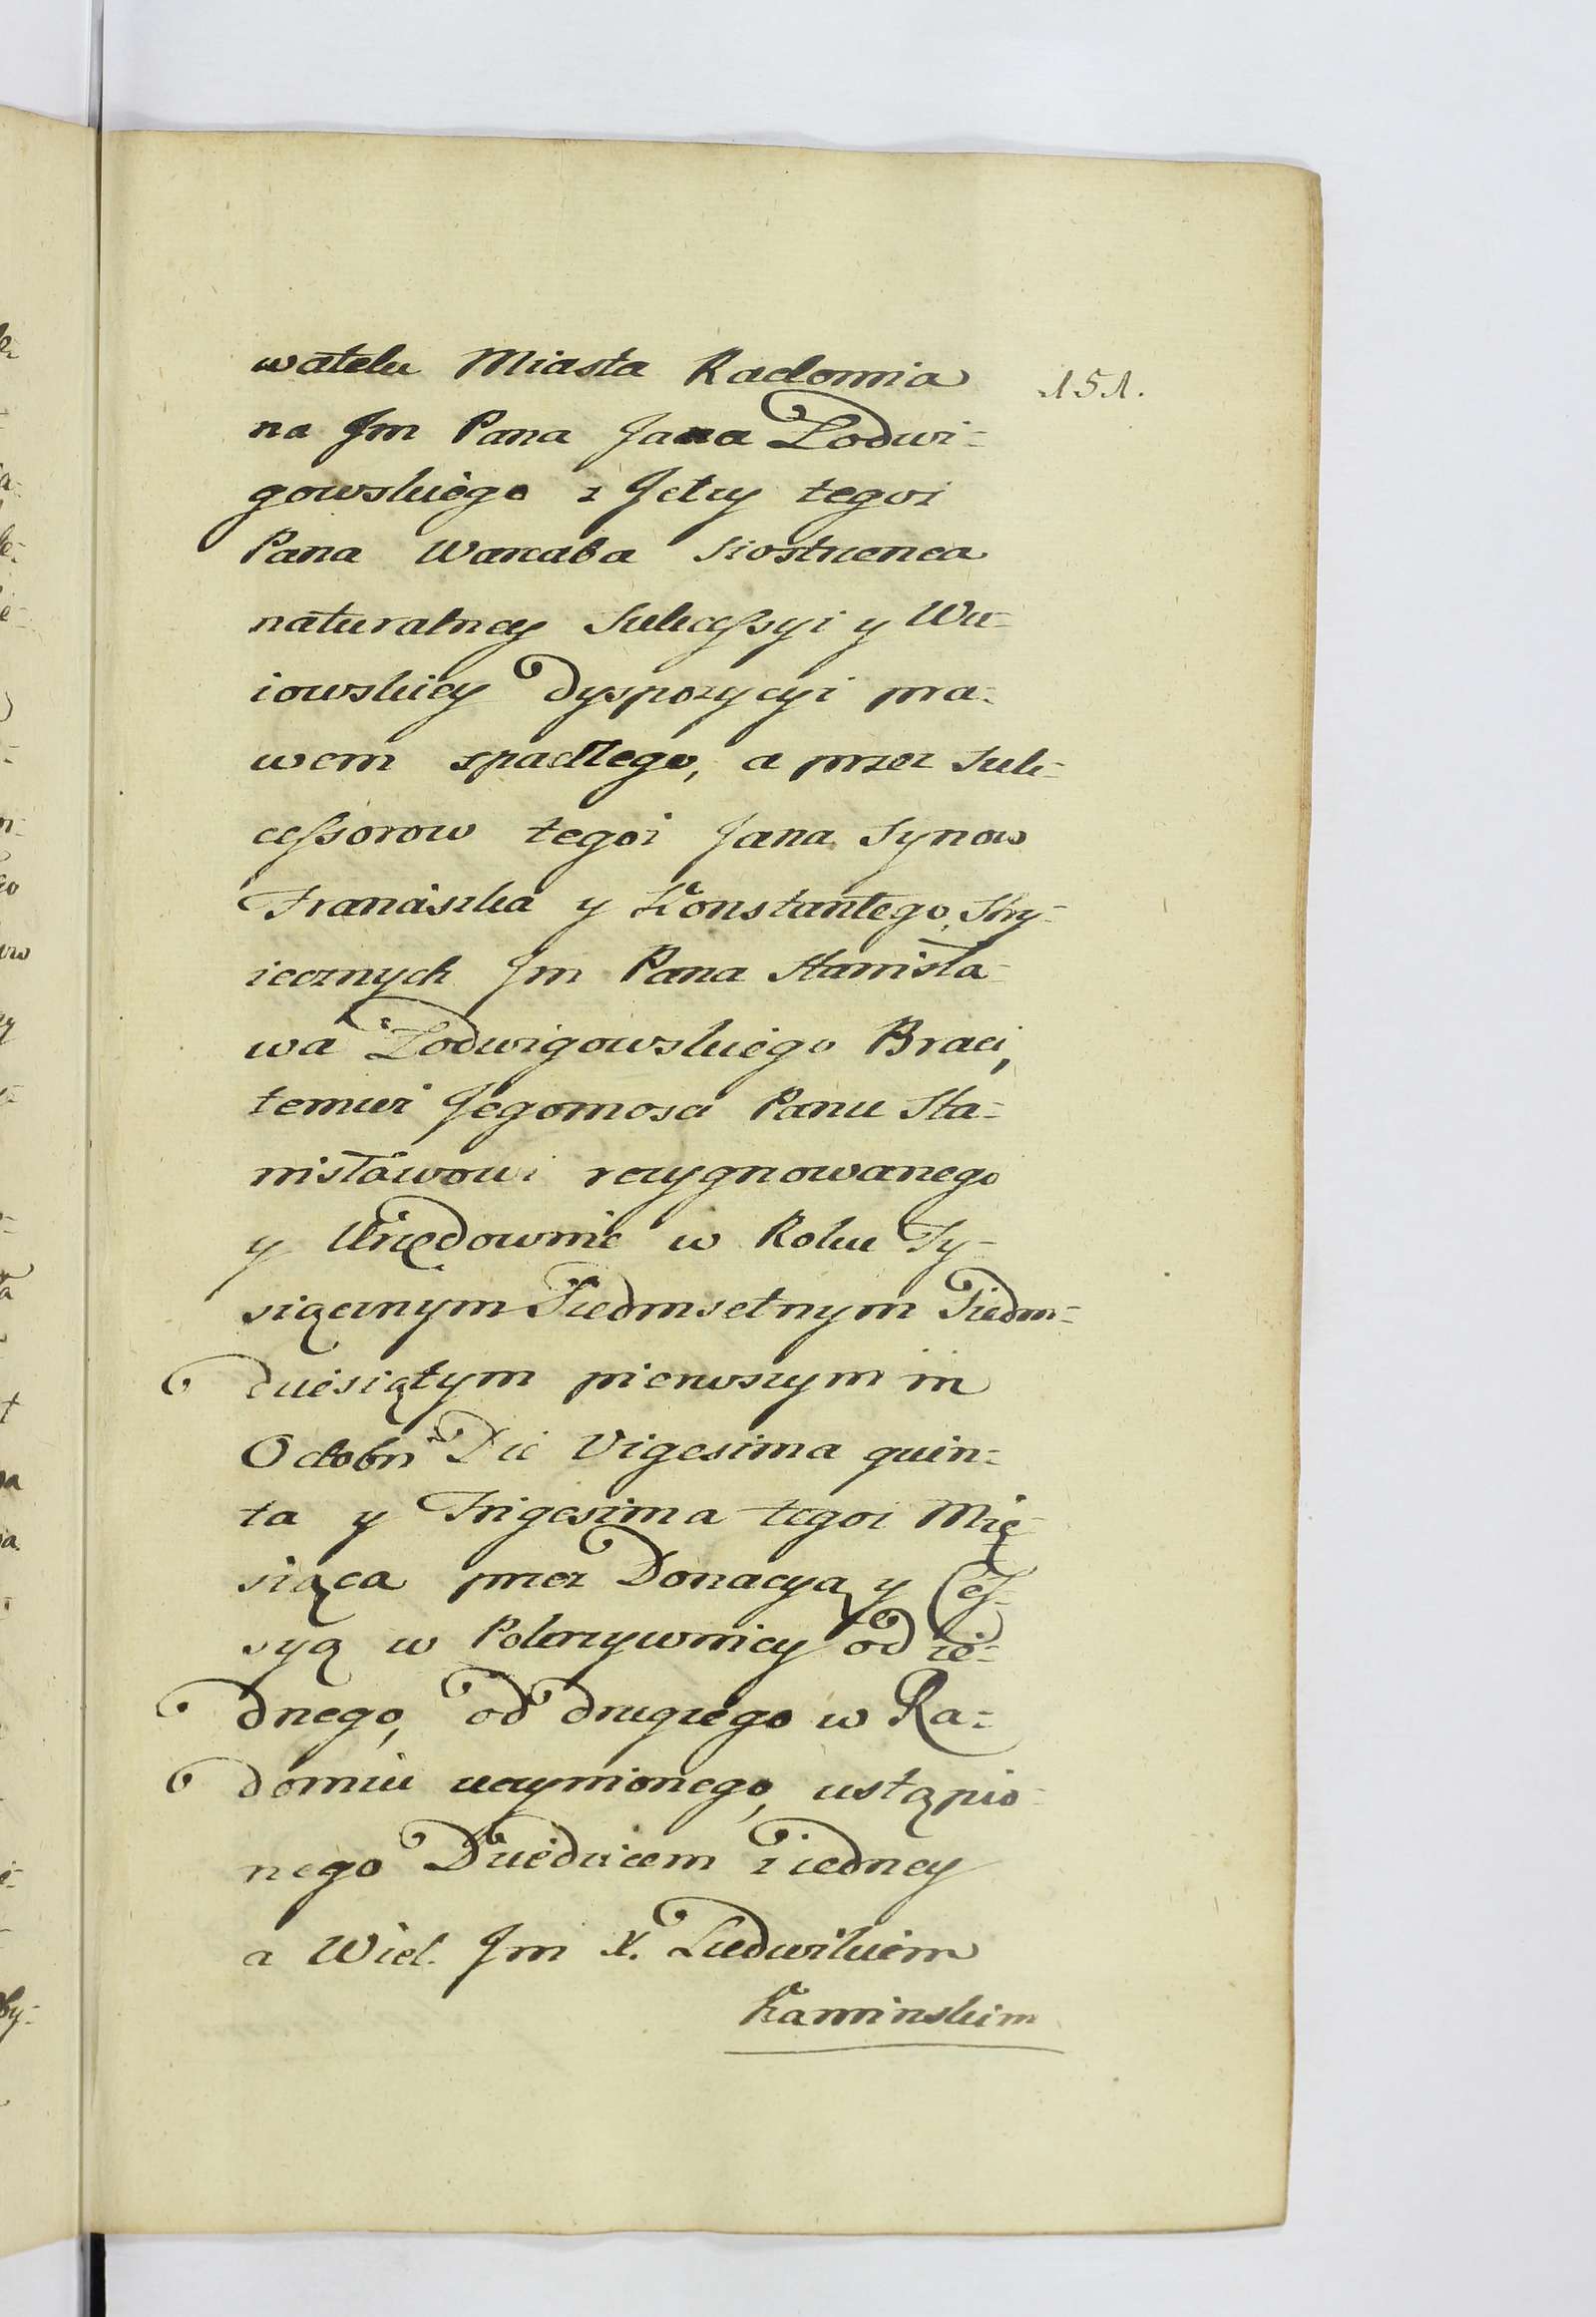 watelu Miasta Radomia
151.
na Jm Pana Jana Lodwi=
gowskiego z Jetry tegoż
Pana Warcaba siostrzenca
naturalney Sukceßyi y Wu=
iowskiey Dyspozycyi pra=
wem spadłego, a przez Suk=
ceßorow tegoż Jana Synow
Franciszka y Konstantego, Stry=
iecznych Jm Pana Stanisła=
wa Lodwigowskiego Braci,
temuż Jegomosci Panu Sta=
nisławowi rezygnowanego
y Urzędownie w Roku Ty=
siącznym Siedmsetnym Siedm=
dziesiątym pierwszym in
Octobri Die Vigesima quin=
ta y Trigesima tegoż Mie=
siąca przez Donacyą y Ces=
syą w Pokrzywnicy od ie=
dnego, od drugiego w Ra=
domiu uczynionego, ustąpio=
nego Dziedzicem z iedney
a Wiel. Jm X. Ludwikiem
Kaminskim